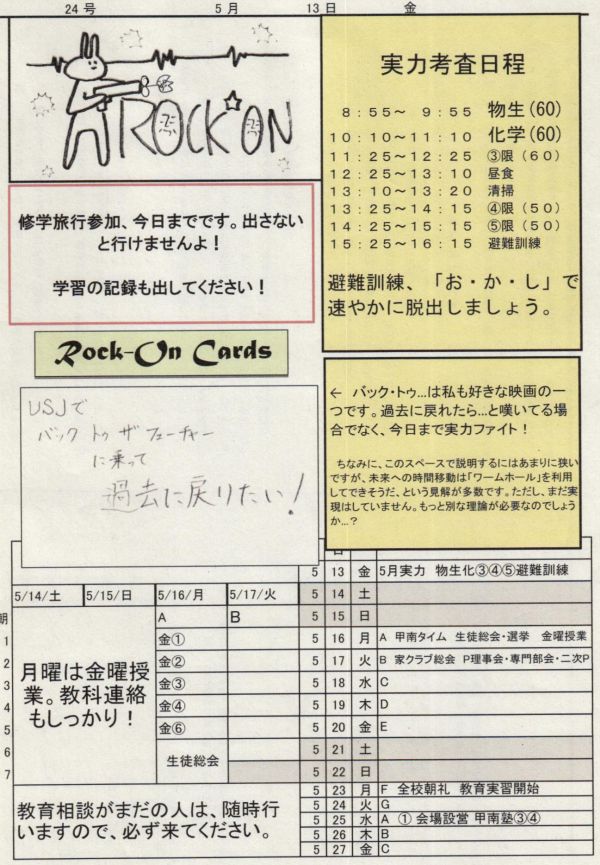 24号 5月 13日 金
ROCK☆ON
実力考査日程
8:55～ 9:55 物生(60)
10:10～11:10 化学(60)
11:25～12:25 ③限(60)
12:25～13:10 昼食
13:10～13:20 清掃
13:25～14:15 ④限(50)
14:25～15:15 ⑤限(50)
15:25～16:15 避難訓練
避難訓練、「お・か・し」で
速やかに脱出しましょう。
修学旅行参加、今日までです。出さない
と行けませんよ！
学習の記録も出してください！
Rock-On Cards
USJで
バック トゥ ザ フューチャー
に乗って
過去に戻りたい！
← バック・トゥ…は私も好きな映画の一
つです。過去に戻れたら…と嘆いてる場
合でなく、今日まで実力ファイト！
ちなみに、このスペースで説明するにはあまりに狭い
ですが、未来への時間移動は「ワームホール」を利用
してできそうだ、という見解が多数です。ただし、まだ実
現はしていません。もっと別な理論が必要なのでしょう
か…？
5/14/土 5/15/日 5/16/月 5/17/火
A B
1 金①
2 金②
3 金③
4 金④
5 金⑥
6 生徒総会
7
月曜は金曜授
業。教科連絡
もしっかり！
教育相談がまだの人は、随時行
いますので、必ず来てください。
5 13 金 5月実力 物生化③④⑤避難訓練
5 14 土
5 15 日
5 16 月 A 甲南タイム 生徒総会・選挙 金曜授業
5 17 火 B 家クラブ総会 P理事会・専門部会・二次P
5 18 水 C
5 19 木 D
5 20 金 E
5 21 土
5 22 日
5 23 月 F 全校朝礼 教育実習開始
5 24 火 G
5 25 水 A ① 会場設営 甲南塾③④
5 26 木 B
5 27 金 C